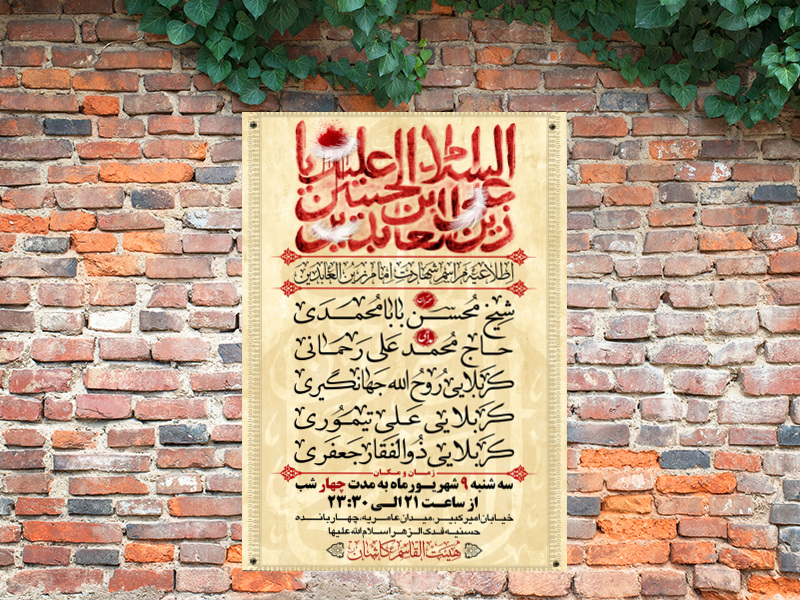 السلام علیک یا
علی ابن الحسین
زین العابدین
اطلاعیه مراسم شهادت امام زین العابدین
سخنران
شیخ محسن بابامحمدی
مداحی
حاج محمد علی رحمانی
کربلایی روح الله جهانگیری
کربلایی علی تیموری
کربلایی ذوالفقار جعفری
زمان و مکان
سه شنبه ۹ شهریور ماه به مدت چهار شب
از ساعت ۲۱ الی ۲۳:۳۰
خیابان امیر کبیر، میدان عامریه، چهار بانده
حسنیه فدک الزهرا سلام الله علیها
هیئت القاسم کاشان